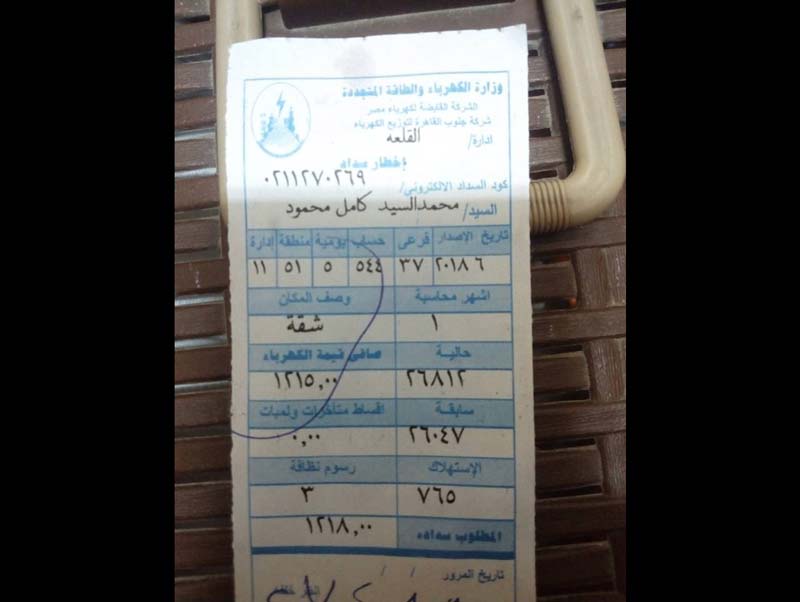 وزارة الكهرباء والطاقة المتجددة
الشركة القابضة لكهرباء مصر
شركة جنوب القاهرة لتوزيع الكهرباء
ادارة/ القلعه
إخطار سداد
كود السداد الالكتروني/ ٠٢١١٢٧٠٢٦٩
السيد/ محمدالسيد كامل محمود
تاريخ الإصدار فرعى حساب يومية منطقة إدارة
٢٠١٨ ٦ ٣٧ ٥٤٤ ٥ ٥١ ١١
اشهر محاسبة وصف المكان
١ شقة
حالية صافى قيمة الكهرباء
٢٦٨١٢ ١٢١٥,٠٠
سابقة اقساط متأخرات ولمبات
٢٦٠٤٧ ٠,٠٠
الإستهلاك رسوم نظافة
٧٦٥ ٣
المطلوب سداده ١٢١٨,٠٠
تاريخ المرور / /